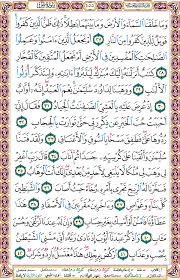 وَمَا خَلَقْنَا السَّمَاءَ وَالْأَرْضَ وَمَا بَيْنَهُمَا بَاطِلًا ذَٰلِكَ ظَنُّ الَّذِينَ كَفَرُوا
فَوَيْلٌ لِّلَّذِينَ كَفَرُوا مِنَ النَّارِ ٢٧ أَمْ نَجْعَلُ الَّذِينَ آمَنُوا وَعَمِلُوا
الصَّالِحَاتِ كَالْمُفْسِدِينَ فِي الْأَرْضِ أَمْ نَجْعَلُ الْمُتَّقِينَ كَالْفُجَّارِ
٢٨ كِتَابٌ أَنزَلْنَاهُ إِلَيْكَ مُبَارَكٌ لِّيَدَّبَّرُوا آيَاتِهِ وَلِيَتَذَكَّرَ أُولُو
الْأَلْبَابِ ٢٩ وَوَهَبْنَا لِدَاوُودَ سُلَيْمَانَ نِعْمَ الْعَبْدُ إِنَّهُ أَوَّابٌ ٣٠
إِذْ عُرِضَ عَلَيْهِ بِالْعَشِيِّ الصَّافِنَاتُ الْجِيَادُ ٣١ فَقَالَ إِنِّي أَحْبَبْتُ
حُبَّ الْخَيْرِ عَن ذِكْرِ رَبِّي حَتَّىٰ تَوَارَتْ بِالْحِجَابِ ٣٢
رُدُّوهَا عَلَيَّ فَطَفِقَ مَسْحًا بِالسُّوقِ وَالْأَعْنَاقِ ٣٣ وَلَقَدْ فَتَنَّا
سُلَيْمَانَ وَأَلْقَيْنَا عَلَىٰ كُرْسِيِّهِ جَسَدًا ثُمَّ أَنَابَ ٣٤ قَالَ رَبِّ اغْفِرْ
لِي وَهَبْ لِي مُلْكًا لَّا يَنبَغِي لِأَحَدٍ مِّن بَعْدِي إِنَّكَ أَنتَ الْوَهَّابُ
٣٥ فَسَخَّرْنَا لَهُ الرِّيحَ تَجْرِي بِأَمْرِهِ رُخَاءً حَيْثُ أَصَابَ ٣٦
وَالشَّيَاطِينَ كُلَّ بَنَّاءٍ وَغَوَّاصٍ ٣٧ وَآخَرِينَ مُقَرَّنِينَ فِي الْأَصْفَادِ ٣٨
هَٰذَا عَطَاؤُنَا فَامْنُنْ أَوْ أَمْسِكْ بِغَيْرِ حِسَابٍ ٣٩ وَإِنَّ لَهُ عِندَنَا
لَزُلْفَىٰ وَحُسْنَ مَآبٍ ٤٠ وَاذْكُرْ عَبْدَنَا أَيُّوبَ إِذْ نَادَىٰ رَبَّهُ أَنِّي مَسَّنِيَ الشَّيْطَانُ
بِنُصْبٍ وَعَذَابٍ ٤١ ارْكُضْ بِرِجْلِكَ هَٰذَا مُغْتَسَلٌ بَارِدٌ وَشَرَابٌ ٤٢